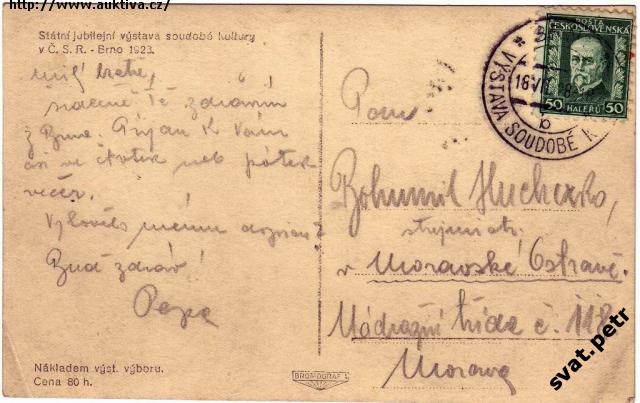 http://www.auktiva.cz/
Státní jubilejní výstava soudobé kultury
v Č. S. R. - Brno 1923.
milý bratře,
srdečně Tě zdravím
z Brna. Přijan K Vám
asi ve čtvrtek neb pátek
večer.
Buď zdráv!
Pepa
Nákladem výst. výboru.
Cena 80 h.
POŠTA
ČESKOSLOVENSKÁ
50 HALÉŘŮ 50
* VÝSTAVA SOUDOBÉ K
b
Pan
Bohumil
v Moravské Ostravě.
Nádražní třída č. 118
Morava
svat.petr